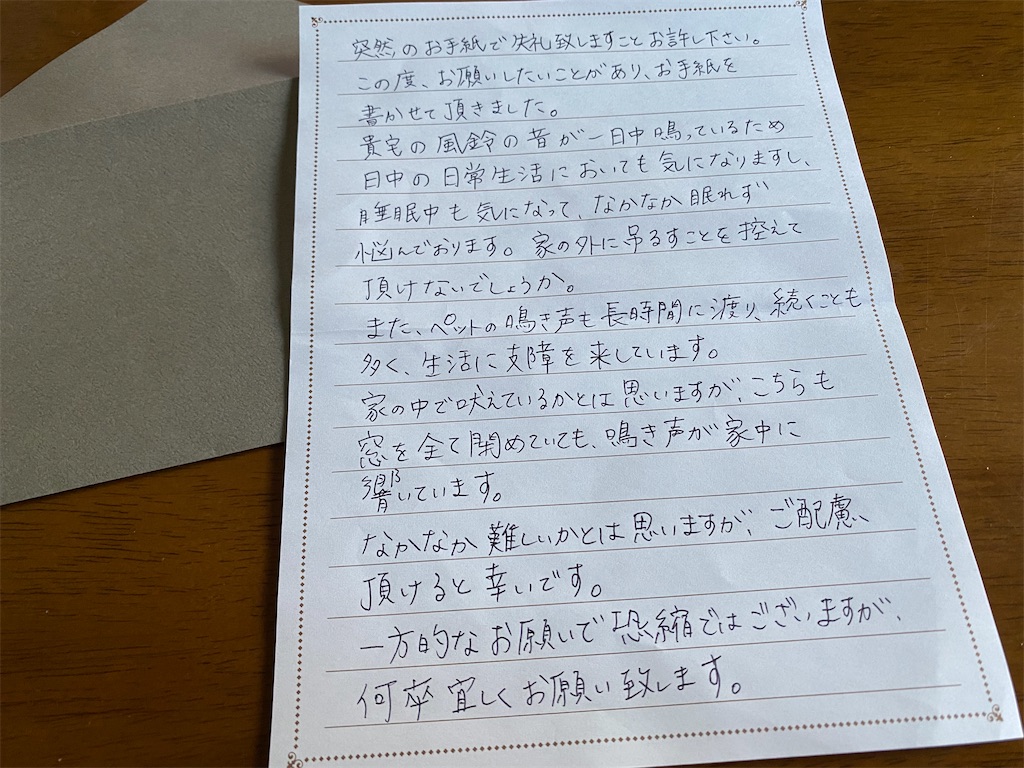 突然のお手紙で失礼致しますことお許し下さい。
この度、お願いしたいことがあり、お手紙を
書かせて頂きました。
貴宅の風鈴の音が一日中鳴っているため
日中の日常生活においても気になりますし、
睡眠中も気になって、なかなか眠れず
悩んでおります。家の外に吊るすことを控えて
頂けないでしょうか。
また、ペットの鳴き声も長時間に渡り、続くことも
多く、生活に支障を来しています。
家の中で吠えているかとは思いますが、こちらも
窓を全て閉めていても、鳴き声が家中に
響いています。
なかなか難しいかとは思いますが、ご配慮、
頂けると幸いです。
一方的なお願いで恐縮ではございますが、
何卒宜しくお願い致します。